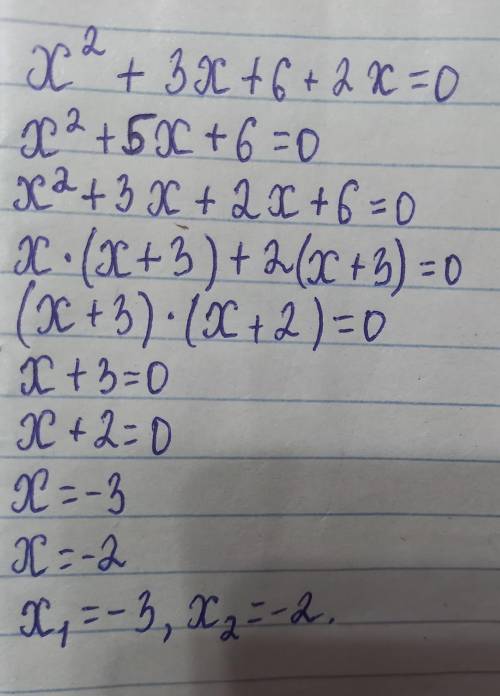 x² + 3x + 6 + 2x = 0
x² + 5x + 6 = 0
x² + 3x + 2x + 6 = 0
x · (x + 3) + 2(x + 3) = 0
(x + 3) · (x + 2) = 0
x + 3 = 0
x + 2 = 0
x = -3
x = -2
x₁ = -3, x₂ = -2.